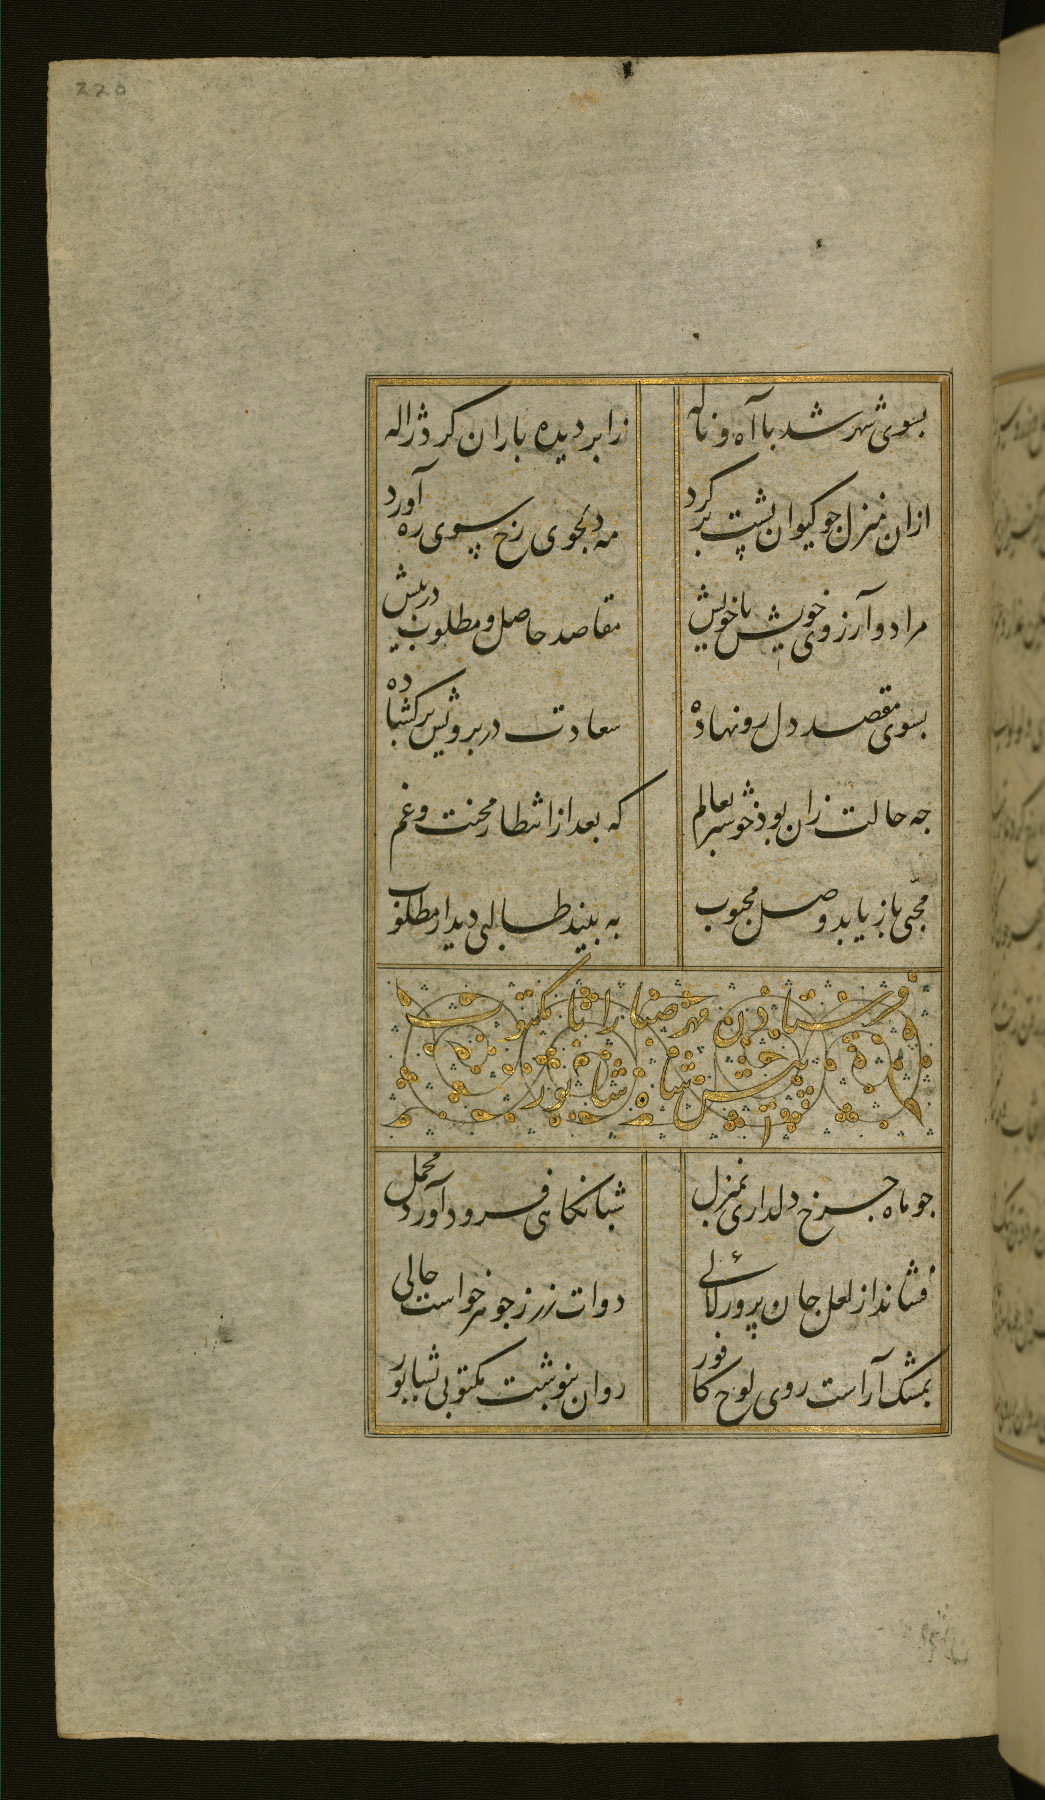 220
بسوی شهر شد با آه و ناله زابر دیده باران کرد ژاله
ازان منزل جو کیوان پشت بر کرد مه دلجوی رخ سوی ره آورد
مراد و آرزوی خویش با خویش مقاصد حاصل و مطلوب در پیش
بسوی مقصد دل رو نهاده سعادت در بروش بر کشاده
جه حالت زان بود خوشتر بعالم که بعد از انتظار محنت و غم
محبی باز یابد وصل محبوب به بیند طالبی دیدار مطلوب
فرستادن مهر صبا را با مکتوب
پیش شاه شابور
جو ماه جرخ دلداری بمنزل شبانکاهی فرود آورد محمل
فشاند از لعل جان پرور لآلی دوات زر ز جوهر خواست حالی
بمشک آراست روی لوح کافور روان بنوشت مکتوبی بشابور